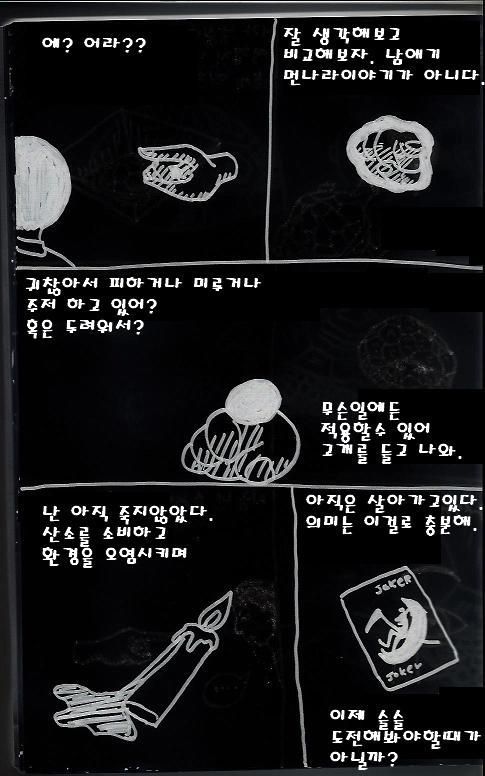 에? 어라??
잘 생각해보고
비교해보자. 남얘기
먼나라이야기가 아니다.
귀찮아서 피하거나 미루거나
주저 하고 있어?
혹은 두려워서?
무슨일에든
적용할수 있어
고개를 들고 나와.
난 아직 죽지않았다.
산소를 소비하고
환경을 오염시키며
아직은 살아가고있다.
의미는 이걸로 충분해.
JOKER
JOKER
이제 슬슬
도전해봐야할때가
아닐까?